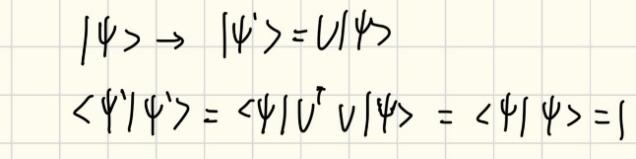 |ψ> → |ψ'> = U|ψ>
<ψ'|ψ'> = <ψ|U†U|ψ> = <ψ|ψ> = 1